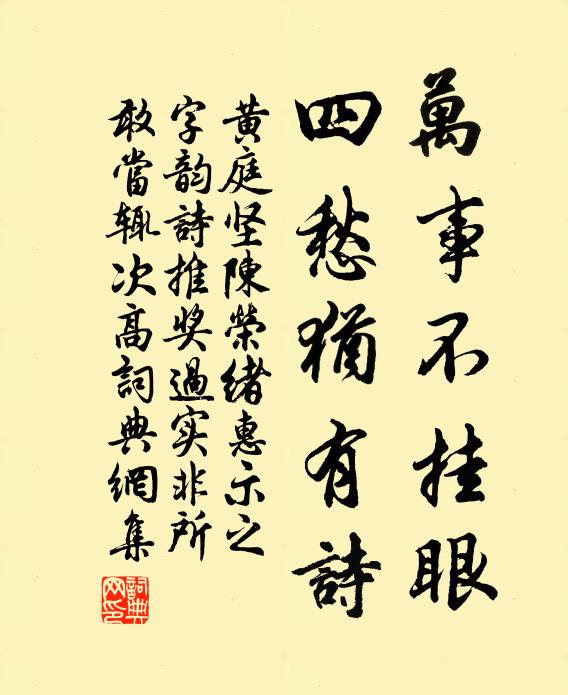 萬事不挂眼
四愁猶有詩
黄庭坚陳榮緒惠示之
字韵詩推奖過实非所
敢當辄次高詞典網集
詞典
网印